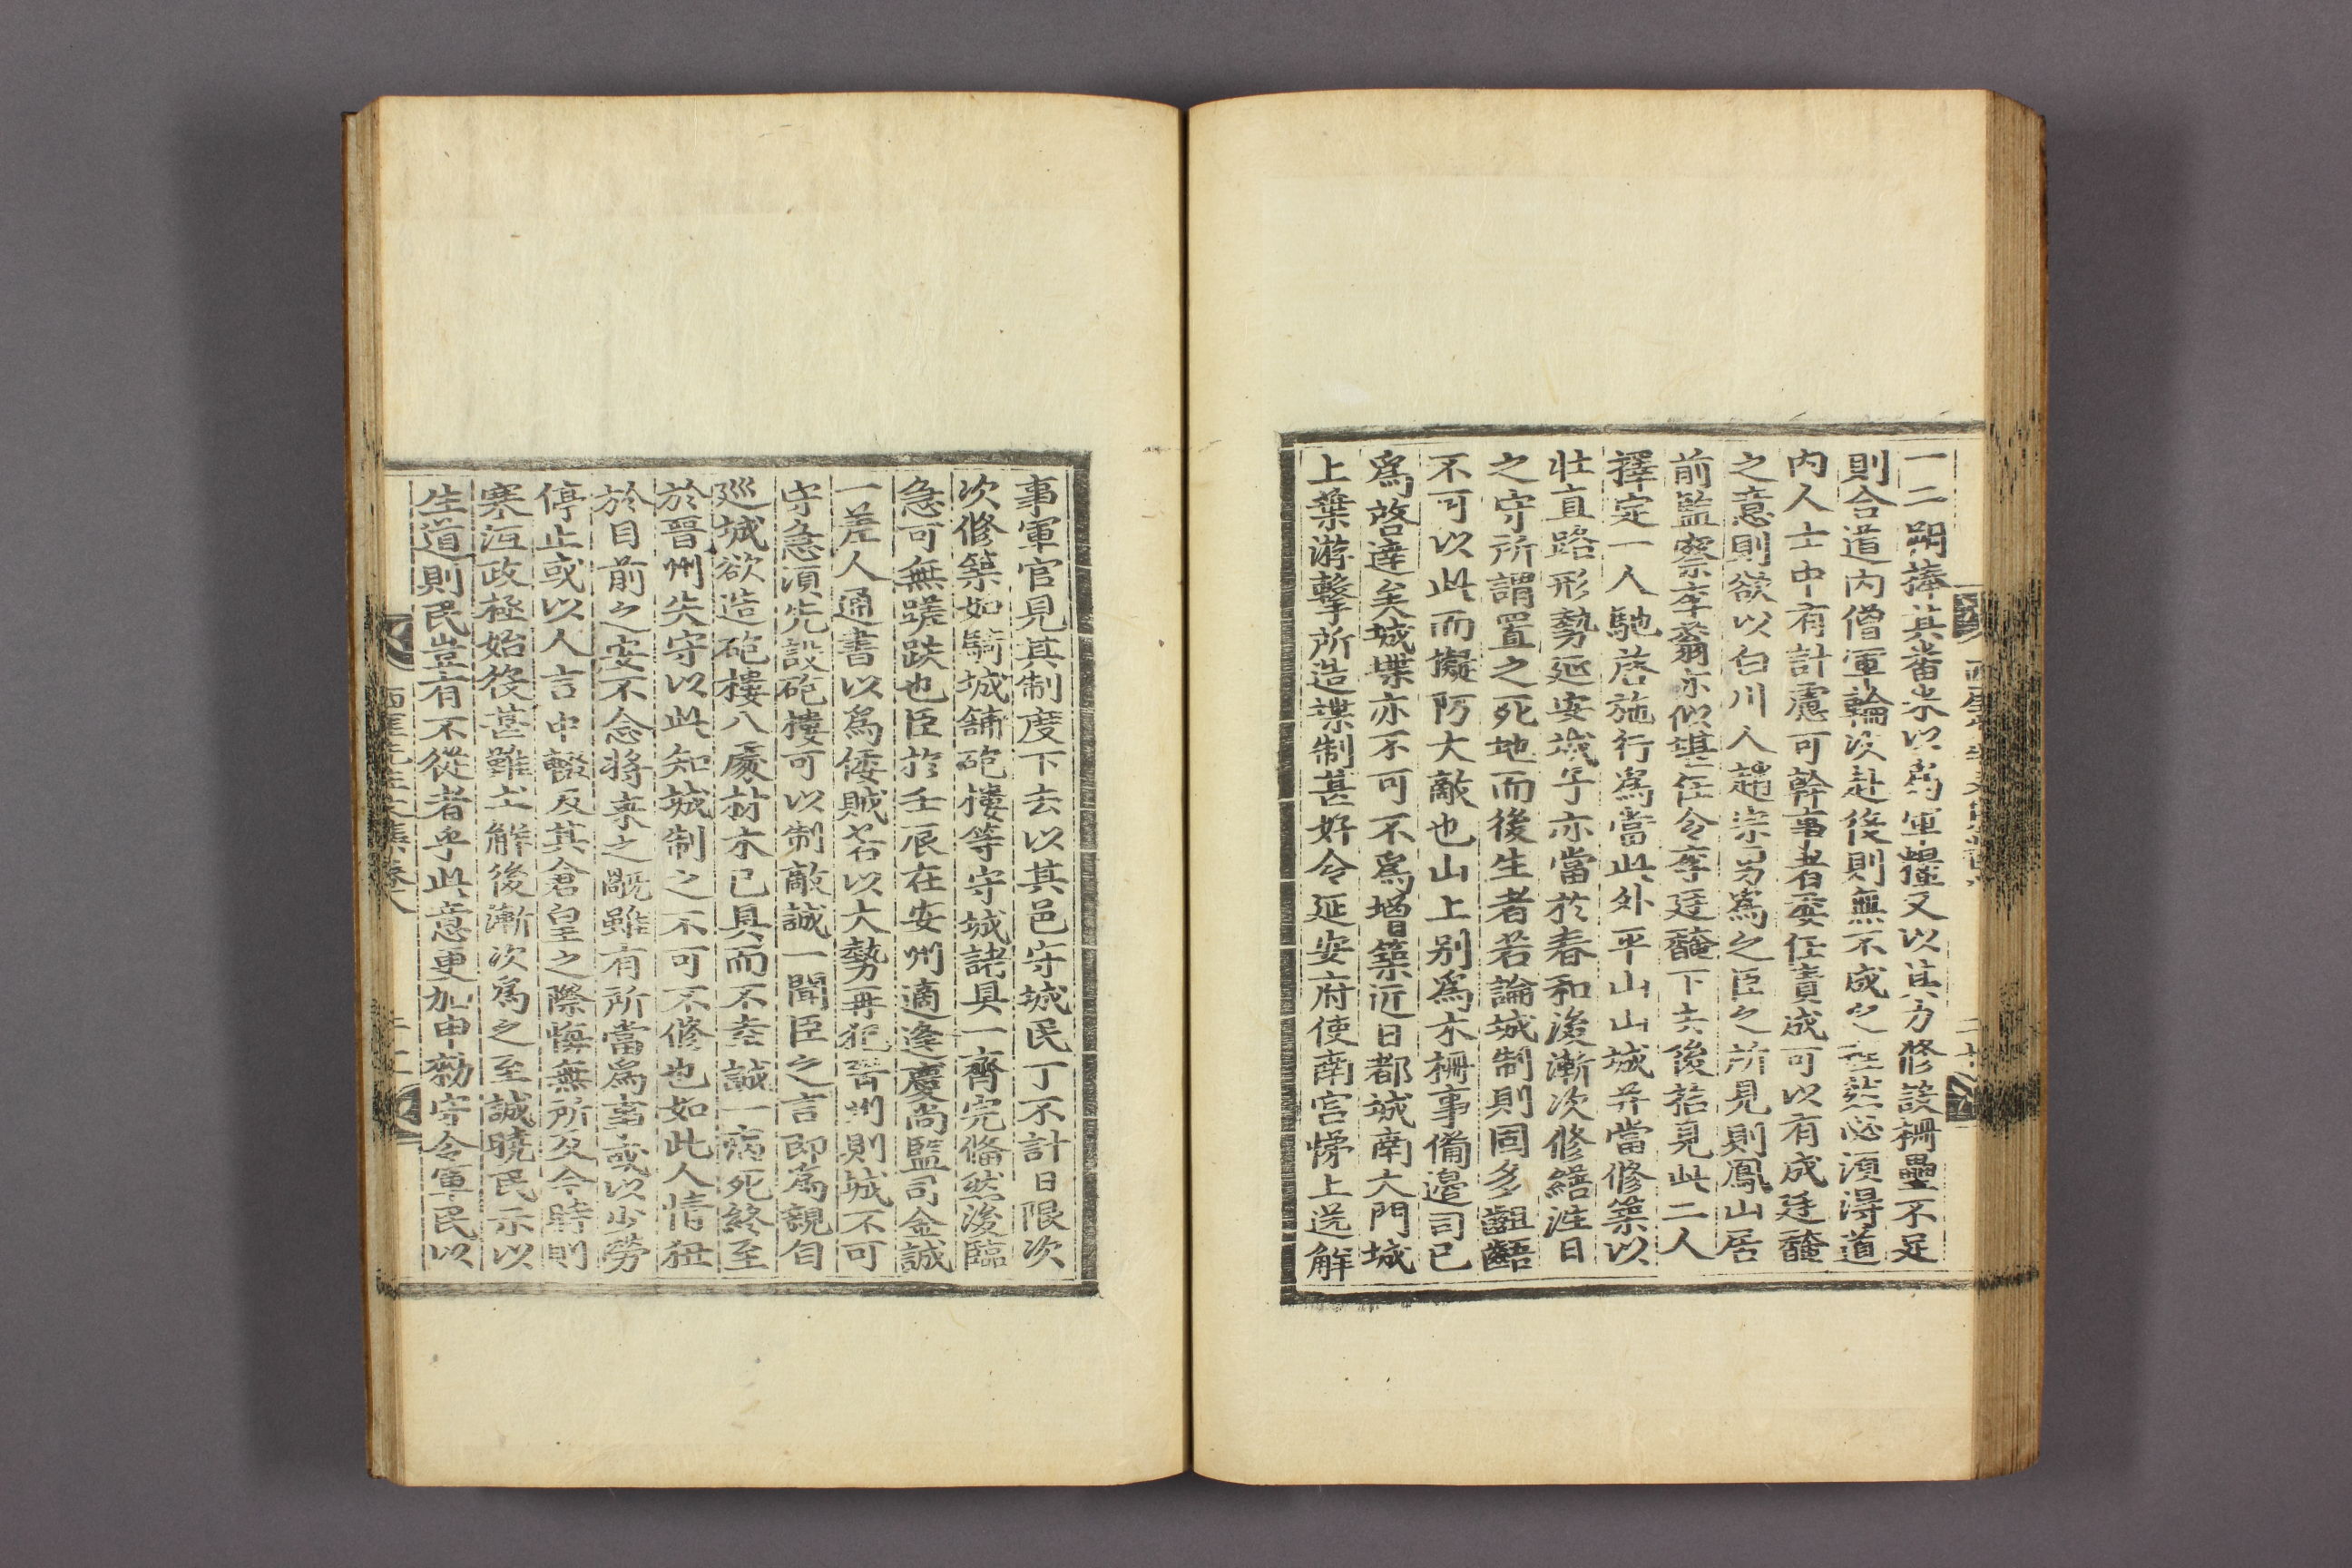 一二朔捧其番米以爲軍糧又以其方修設柵壘不足
則合道內僧軍輪次赴役則無不成之理然必須得道
內人士中有計慮可幹事者委任責成可以有成廷馣
之意則欲以白川人趙宗男爲之臣之所見則鳳山居
前監察李翁亦似堪任令李廷馣下去後招見此二人
擇定一人馳啓施行爲當此外平山山城并當修築以
壯直路形勢延安城子亦當於春和後漸次修繕沮日
之守所謂置之死地而後生者若論城制則固多齟齬
不可以此而擬防大敵也山上別爲木柵事備邊司已
爲啓達矣城堞亦不可不爲增築近日都城南大門城
上葉游擊所造堞制甚好令延安府使南宮悌上送解
事軍官見其制度下去以其邑守城民丁不計日限次
次修築如騎城鋪砲樓等守城諸具一齊完備然後臨
急可無蹉跌也臣於壬辰在安州適逢慶尙監司金誠
一差人通書以爲倭賊若以大勢再犯晉州則城不可
守急須先設砲樓可以制敵誠一聞臣之言卽爲親自
巡城欲造砲樓八處材木已具而不幸誠一病死終至
於晉州失守以此知城制之不可不修也如此人情狃
於目前之安不念將來之慨雖有所當爲事或以少勞
停止或以人言中輟及其倉皇之際悔無所及今時則
寒沍政極始役甚難土解後漸次爲之至誠曉民示以
生道則民豈有不從者乎此意更加申勑守令軍民以
西厓先生文集卷八